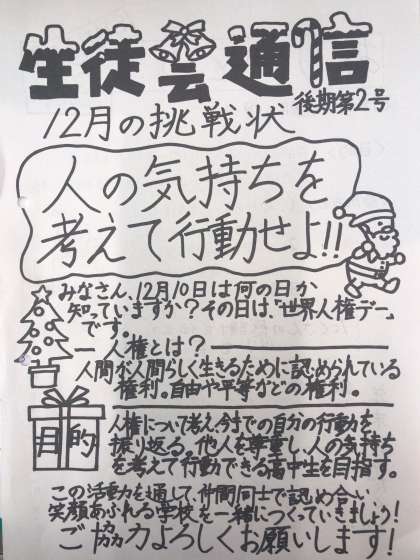 生徒会通信
後期第2号
12月の挑戦状
人の気持ちを
考えて行動せよ!!
みなさん、12月10日は何の日か
知っていますか?その日は、「世界人権デー」
です。
人権とは?
人間が人間らしく生きるために認められている
権利。自由や平等などの権利。
目的
人権について考え、今までの自分の行動を
振り返る。他人を尊重し、人の気持ち
を考えて行動できる高中生を目指す。
この活動を通して、仲間同士で認め合い、
笑顔あふれる学校を一緒につくっていきましょう!
ご協力よろしくお願いします!